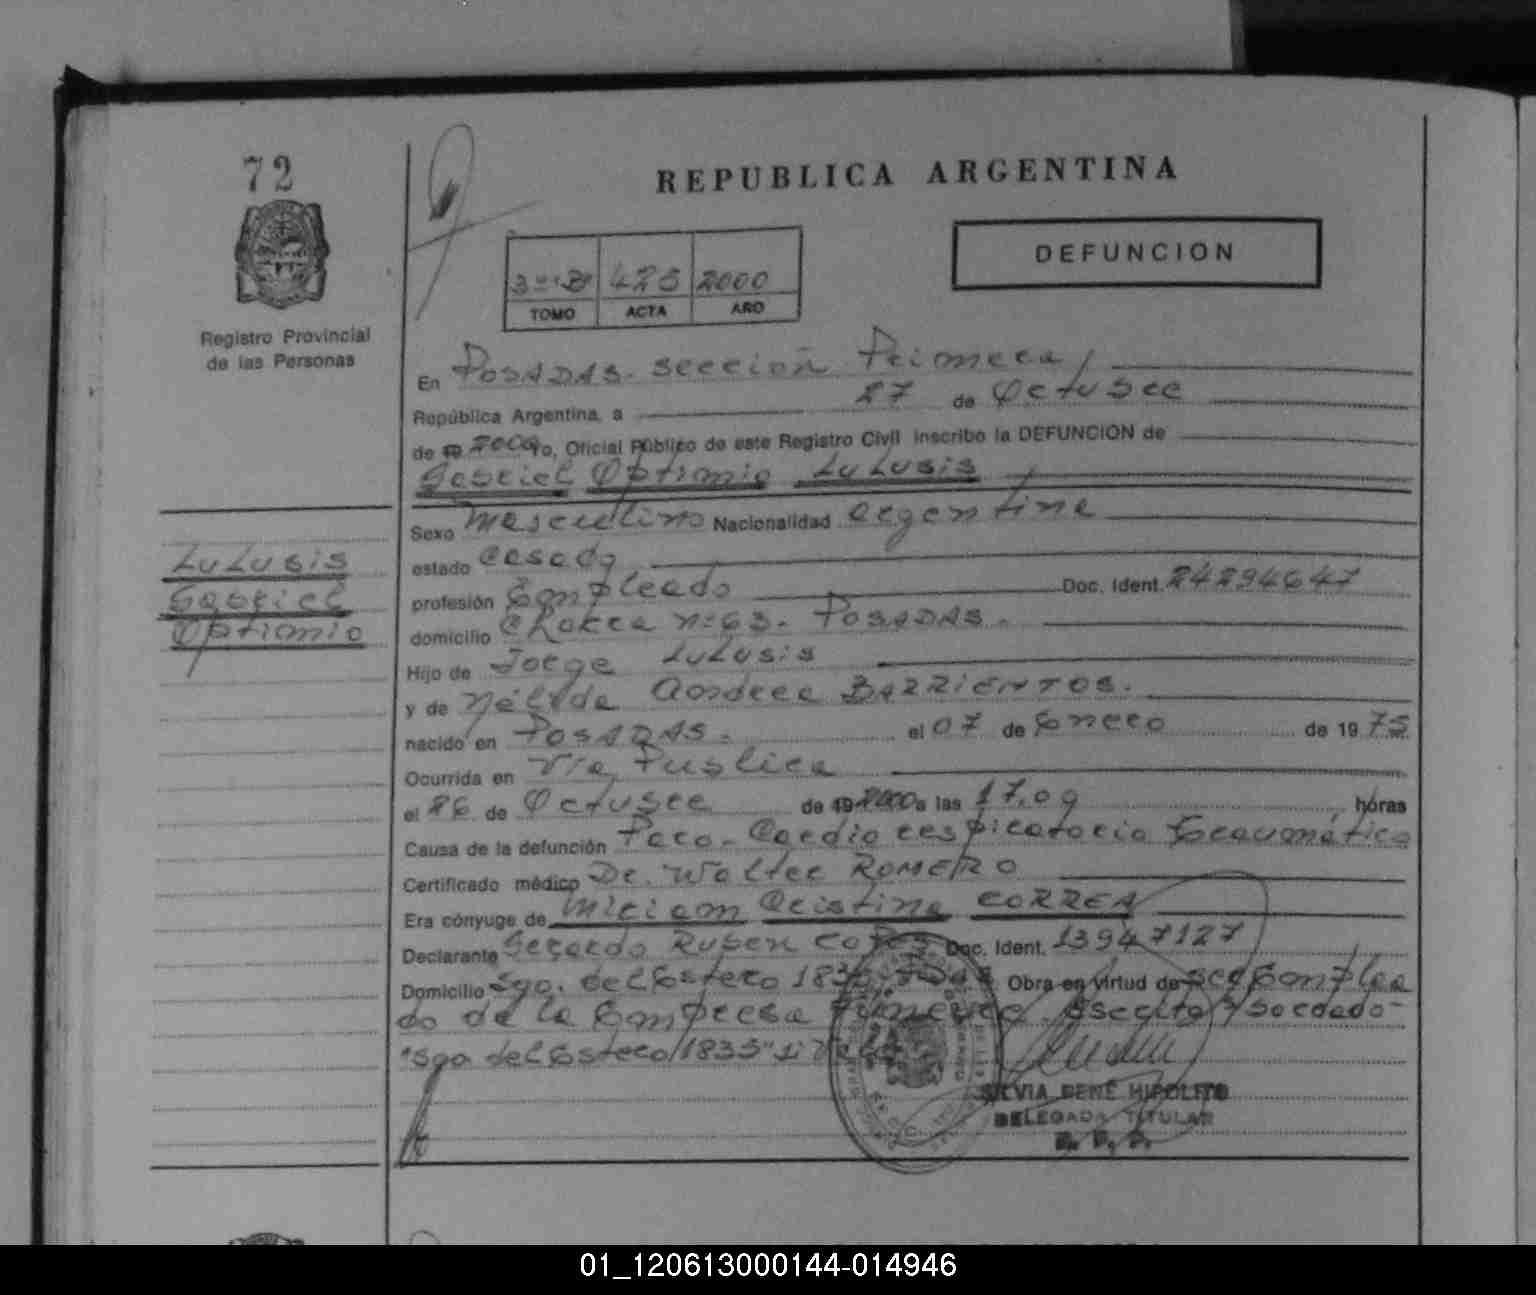 72
REPUBLICA ARGENTINA
DEFUNCION
425 2000
TOMO ACTA AÑO
Registro Provincial
de las Personas
En POSADAS. sección Primera
República Argentina, a 27 de Octubre
de 19 2000 yo, Oficial Público de este Registro Civil inscribo la DEFUNCION de
Gabriel Optimio LULUSIS
Sexo masculino Nacionalidad argentina
LULUSIS
Gabriel
Optimio
estado casado
profesión Empleado Doc. Ident. 24294647
domicilio Chacra nº 63. POSADAS.
Hijo de Jorge LULUSIS
y de Nélida Andrea BARRIENTOS.
nacido en POSADAS. el 07 de Enero de 1975
Ocurrida en Vía Publica
el 26 de Octubre de 19 2000 a las 17,09 horas
Causa de la defunción Paro-Cardio respiratorio traumático
Certificado médico Dr. Walter ROMERO
Era cónyuge de Miriam Cristina CORREA
Declarante Gerardo Ruben Doc. Ident. 13947127
Domicilio Sgo. del Estero 1835 Obra en virtud de ser Emplea
do de la Empresa
"Sgo del Estero 1835"
SILVIA RENE HIPOLITO
DELEGADA TITULAR
01_120613000144-014946